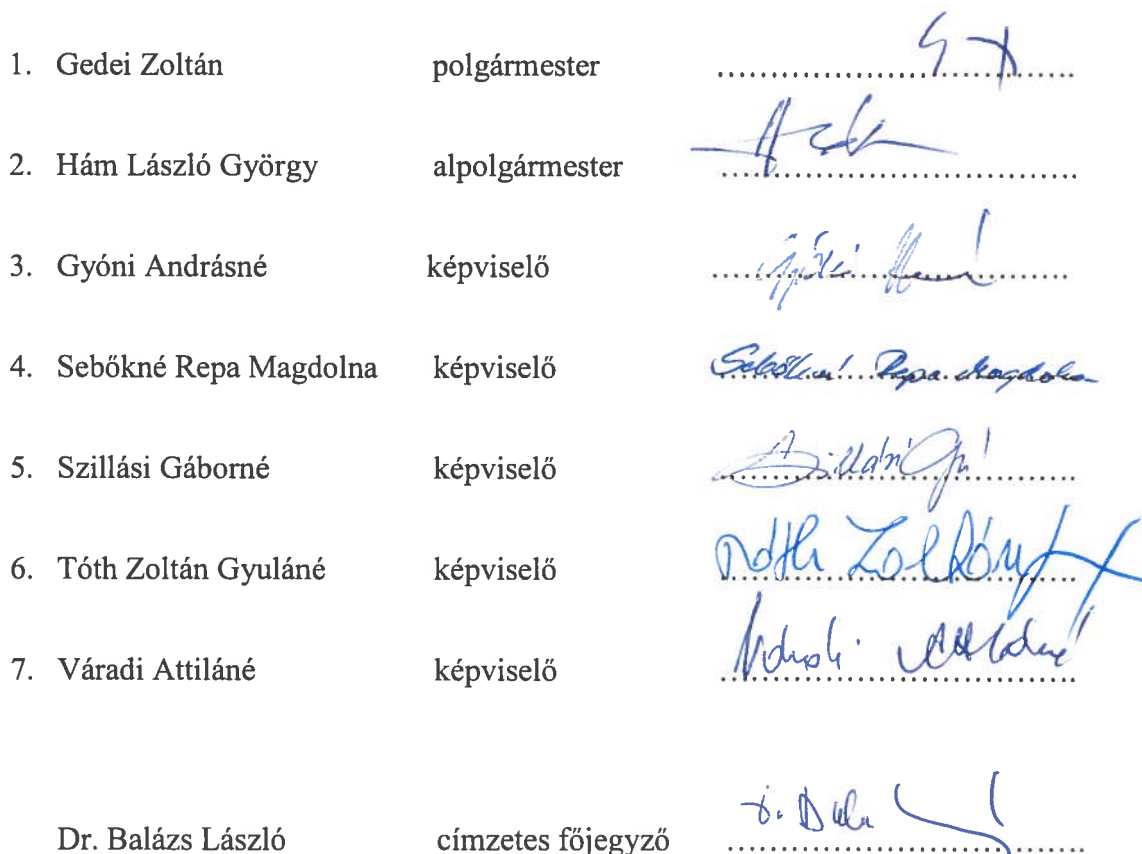 1. Gedei Zoltán polgármester ....................................
2. Hám László György alpolgármester ....................................
3. Gyóni Andrásné képviselő ....................................
4. Sebőkné Repa Magdolna képviselő Sebőkné Repa Magdolna
5. Szillási Gáborné képviselő ....................................
6. Tóth Zoltán Gyuláné képviselő Tóth Zoltán
7. Váradi Attiláné képviselő Váradi Attiláné
Dr. Balázs László címzetes főjegyző ....................................